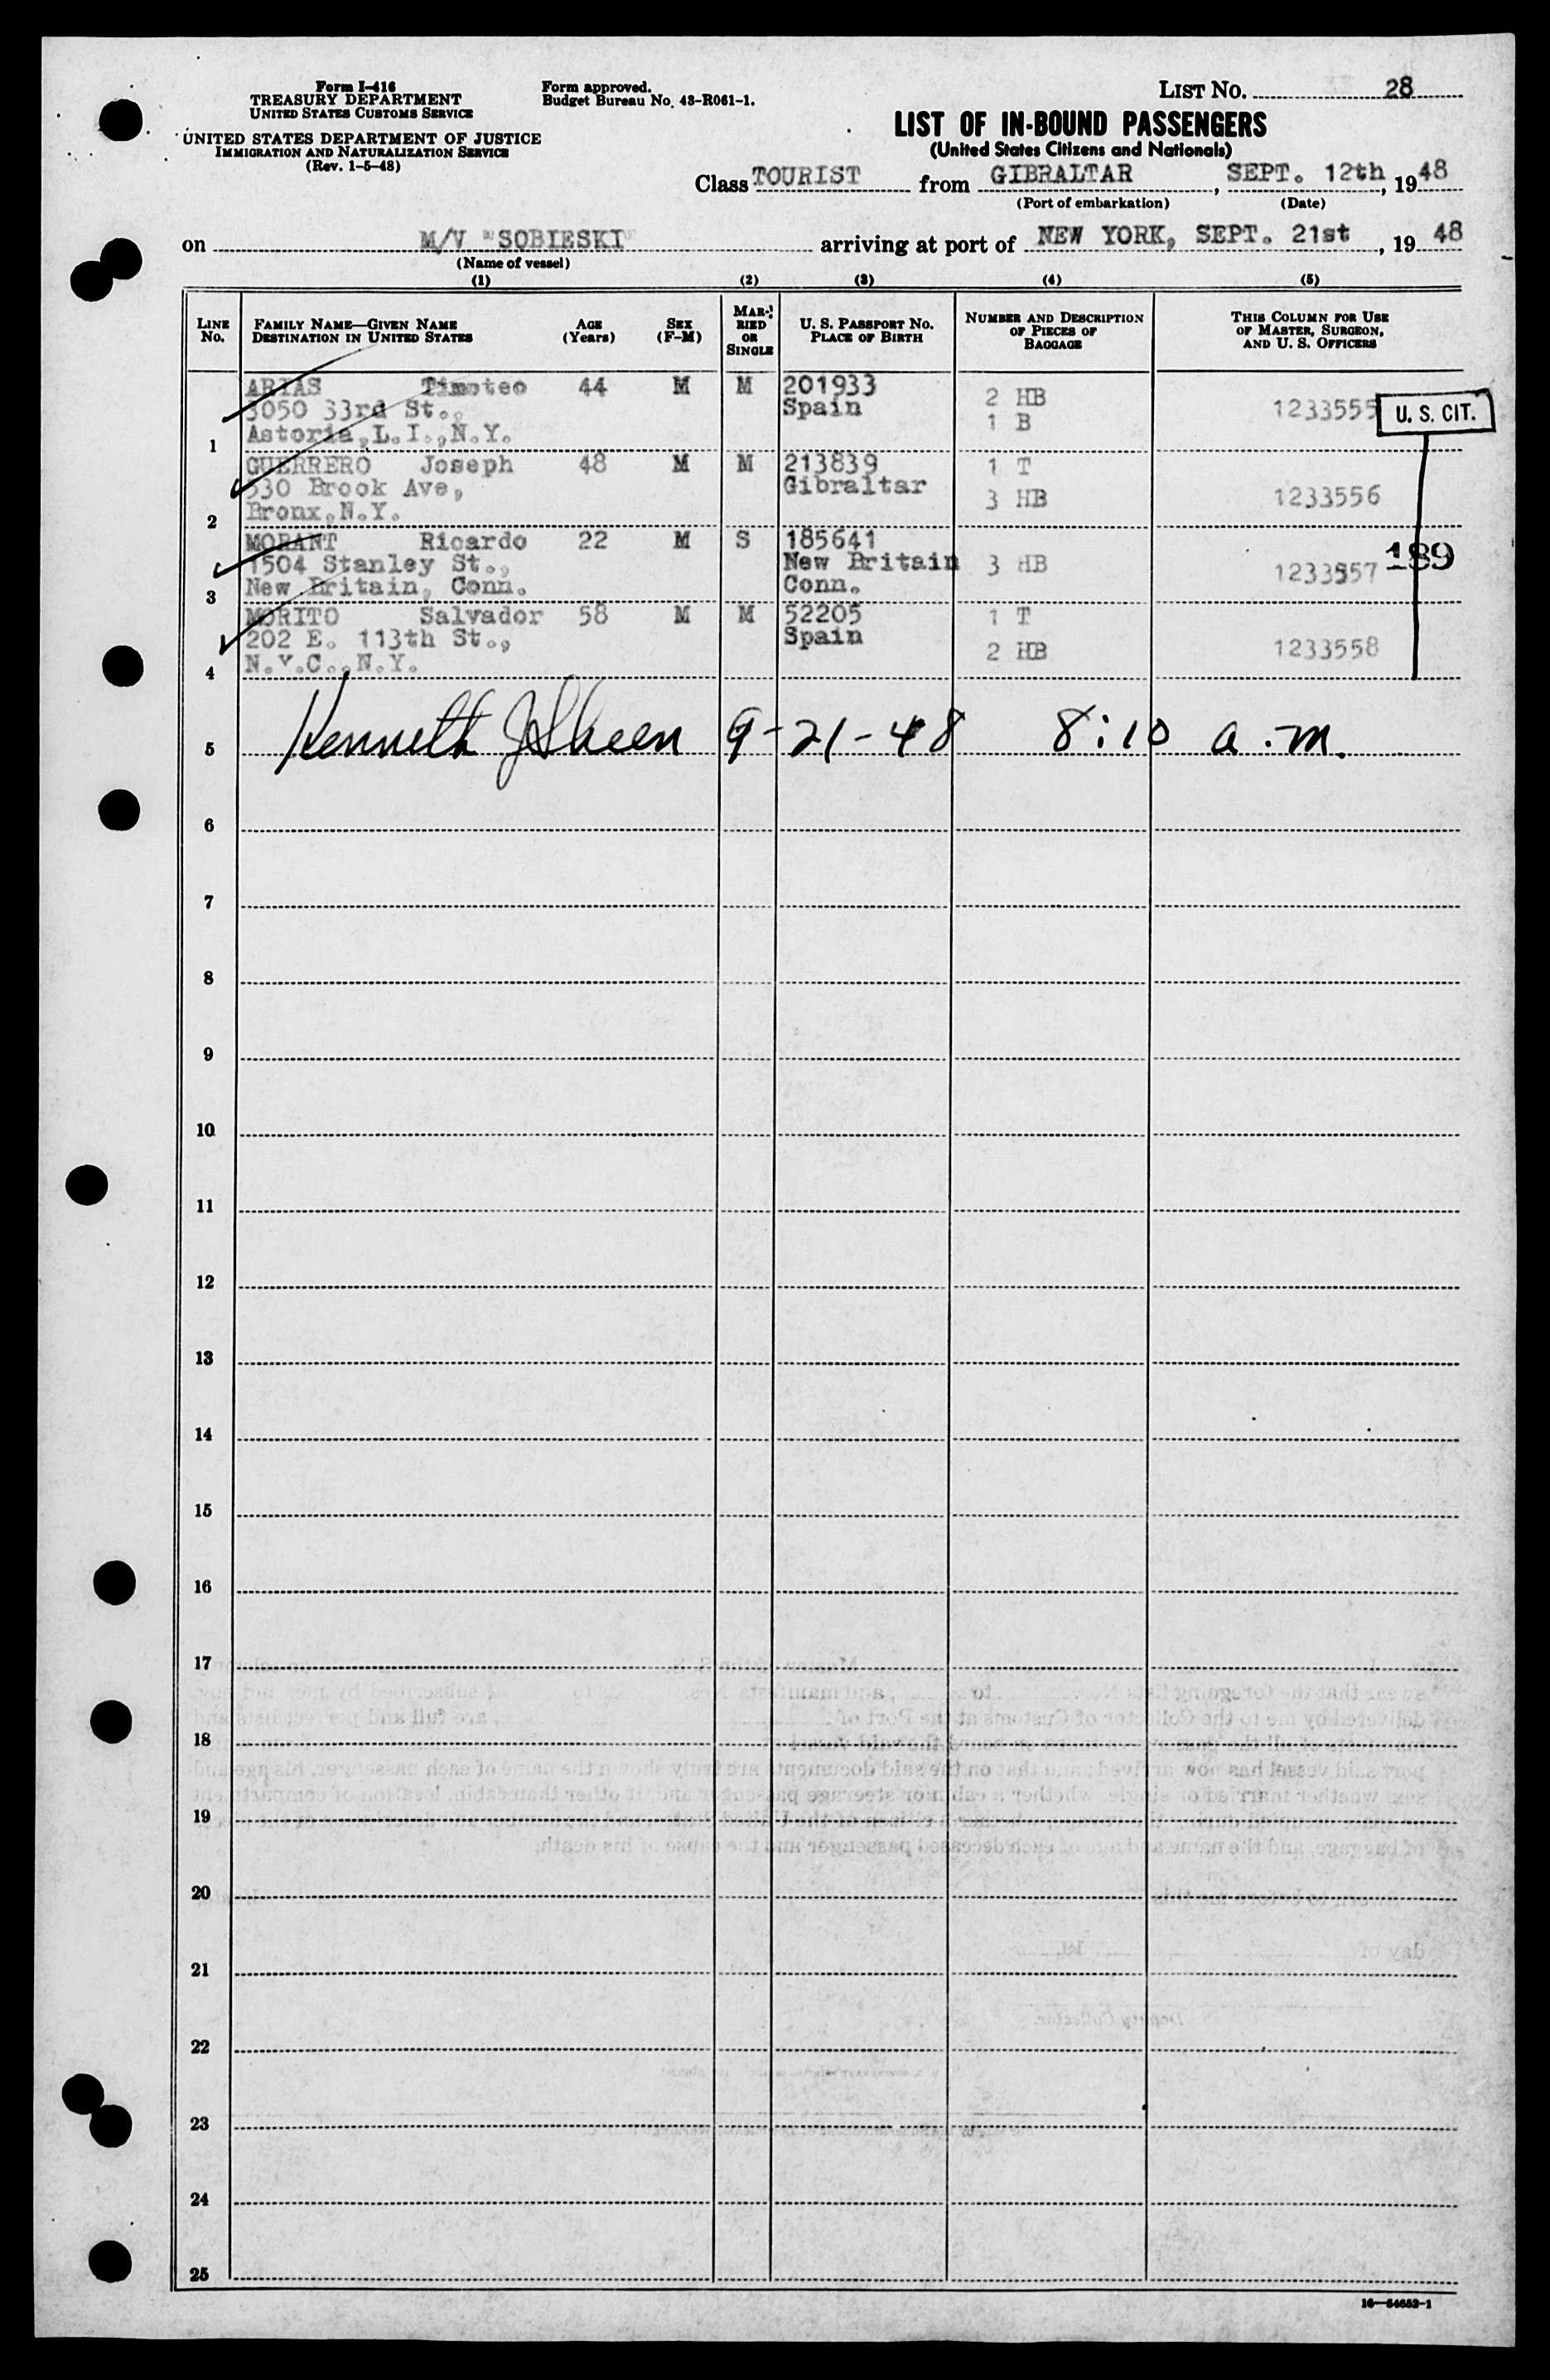 Form I-416
TREASURY DEPARTMENT
UNITED STATES CUSTOMS SERVICE
UNITED STATES DEPARTMENT OF JUSTICE
IMMIGRATION AND NATURALIZATION SERVICE
(Rev. 1-5-48)
Form approved.
Budget Bureau No. 43-R061-1.
LIST No. 28
LIST OF IN-BOUND PASSENGERS
(United States Citizens and Nationals)
Class TOURIST from GIBRALTAR, SEPT. 12th, 1948
(Port of embarkation) (Date)
on M/V "SOBIESKI" arriving at port of NEW YORK, SEPT. 21st, 1948
(Name of vessel)
(1) (2) (3) (4) (5)
LINE No.
FAMILY NAME—GIVEN NAME
DESTINATION IN UNITED STATES
AGE (Years)
SEX (F-M)
MARRIED OR SINGLE
U. S. PASSPORT NO.
PLACE OF BIRTH
NUMBER AND DESCRIPTION OF PIECES OF BAGGAGE
THIS COLUMN FOR USE OF MASTER, SURGEON, AND U. S. OFFICERS
ARIAS Timoteo 44 M M 201933
3050 33rd St., Spain 2 HB 1233555 U. S. CIT.
1 Astoria,L.I.,N.Y. 1 B
GUERRERO Joseph 48 M M 213839 1 T
530 Brook Ave, Gibraltar 3 HB 1233556
2 Bronx,N.Y.
MORANT Ricardo 22 M S 185641
1504 Stanley St., New Britain 3 HB 1233557 189
3 New Britain, Conn. Conn.
MORITO Salvador 58 M M 52205 1 T
202 E. 113th St., Spain 2 HB 1233558
4 N.Y.C.,N.Y.
5 Kenneth J Skeen 9-21-48 8:10 a.m.
6
7
8
9
10
11
12
13
14
15
16
17
18
19
20
21
22
23
24
25